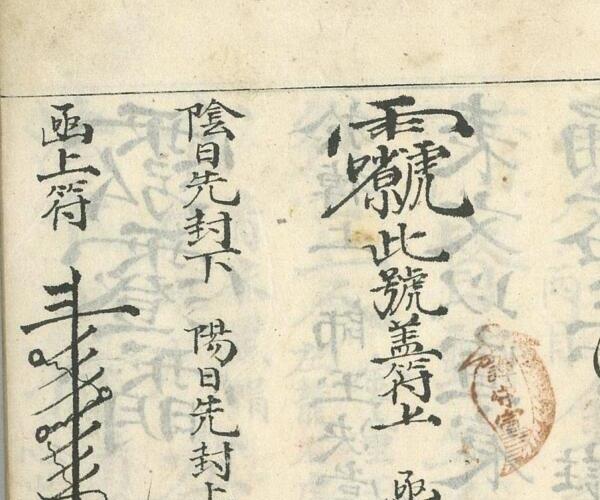 此號盖符上　函
陰日先封下　陽日先封上
函上符